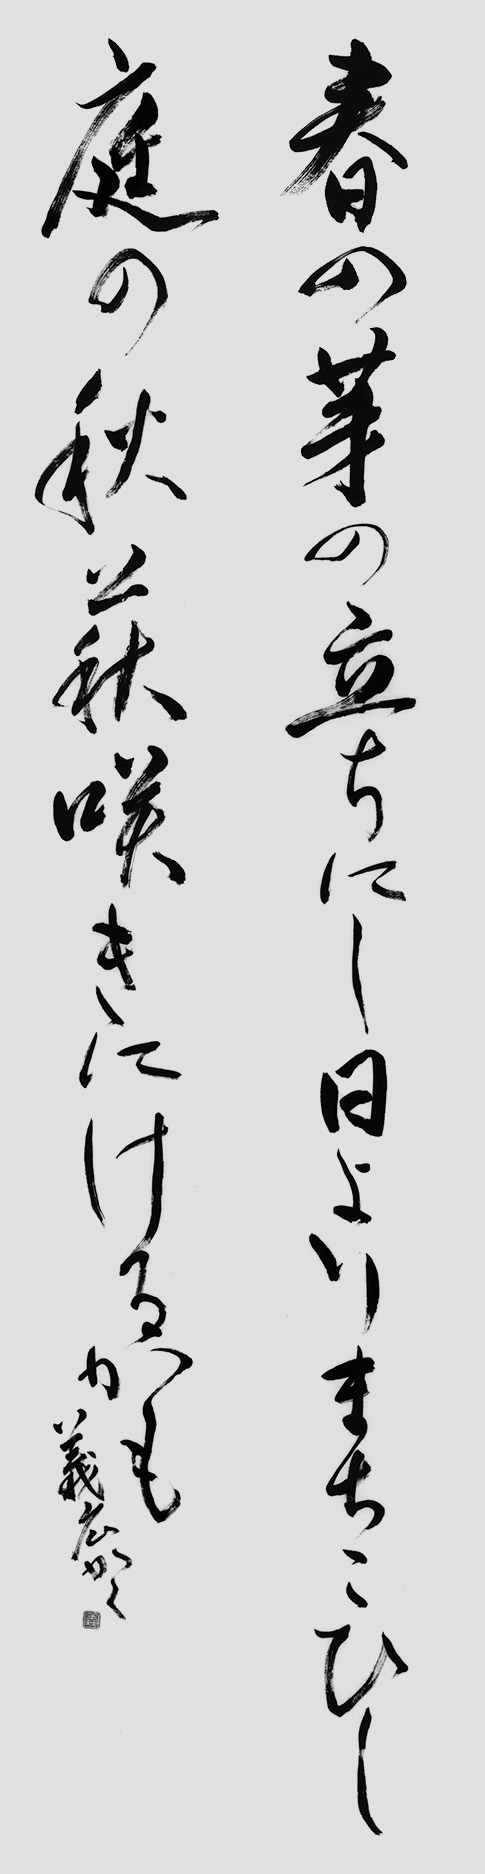 春の芽の立ちにし日よりまちこひし
庭の秋萩咲きにけるかも
義